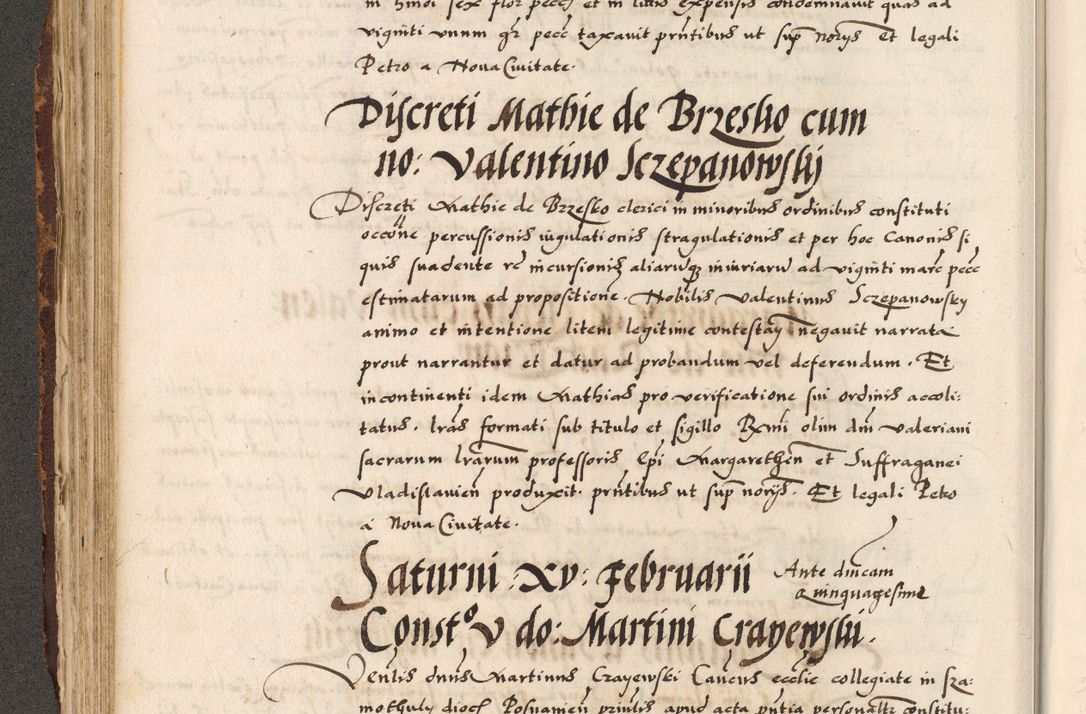 in hmoi sex flor pecc et in litis expensis condemnavit quas ad
viginti unum gr pecc taxavit pntibus ut sup norijs Et legali
Petro a Nova Civitate.
Discreti Mathie de Brzesko cum
no: Valentino Sczepanowskij
Discreti Mathie de Brzesko clerici in minoribus ordinibus constituti
occone percussionis iugulationis stragulationis et per hoc Canonis si
quis suadente rc incursionis aliarumque iniuriarum ad viginti marc pecc
estimatarum ad propositione. Nobilis Valentinus Sczepanowsky
animo et intentione litem legitime contestan negavit narrata
prout narrantur et datur ad probandum vel deferendum. Et
incontinenti idem Mathias pro verificatione sui ordinis accoli:
tatus. lras formati sub titulo et sigillo Rxmi olim dni Valeriani
sacrarum lrarum professoris Epi Margarethen et Suffraganei
Vladislavien produxit. pntibus ut sup norijs. Et legali Petro
a Nova Civitate.
Saturni :xv: Februarii Ante dincam
Quinquagesime
Const. v do: Martini Crayewski.
Venlis dnus Martinus Crayewski Cancus ecclie collegiate in Sza:
mothuly dioc Posnanien prius apud acta pntia personaltr constitu: